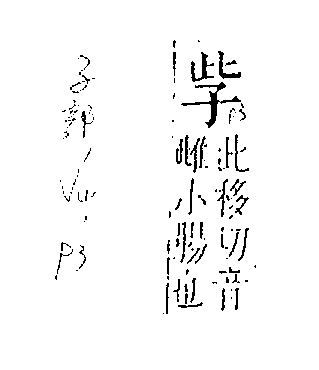 此移切音
雌小腸也
子部
P3